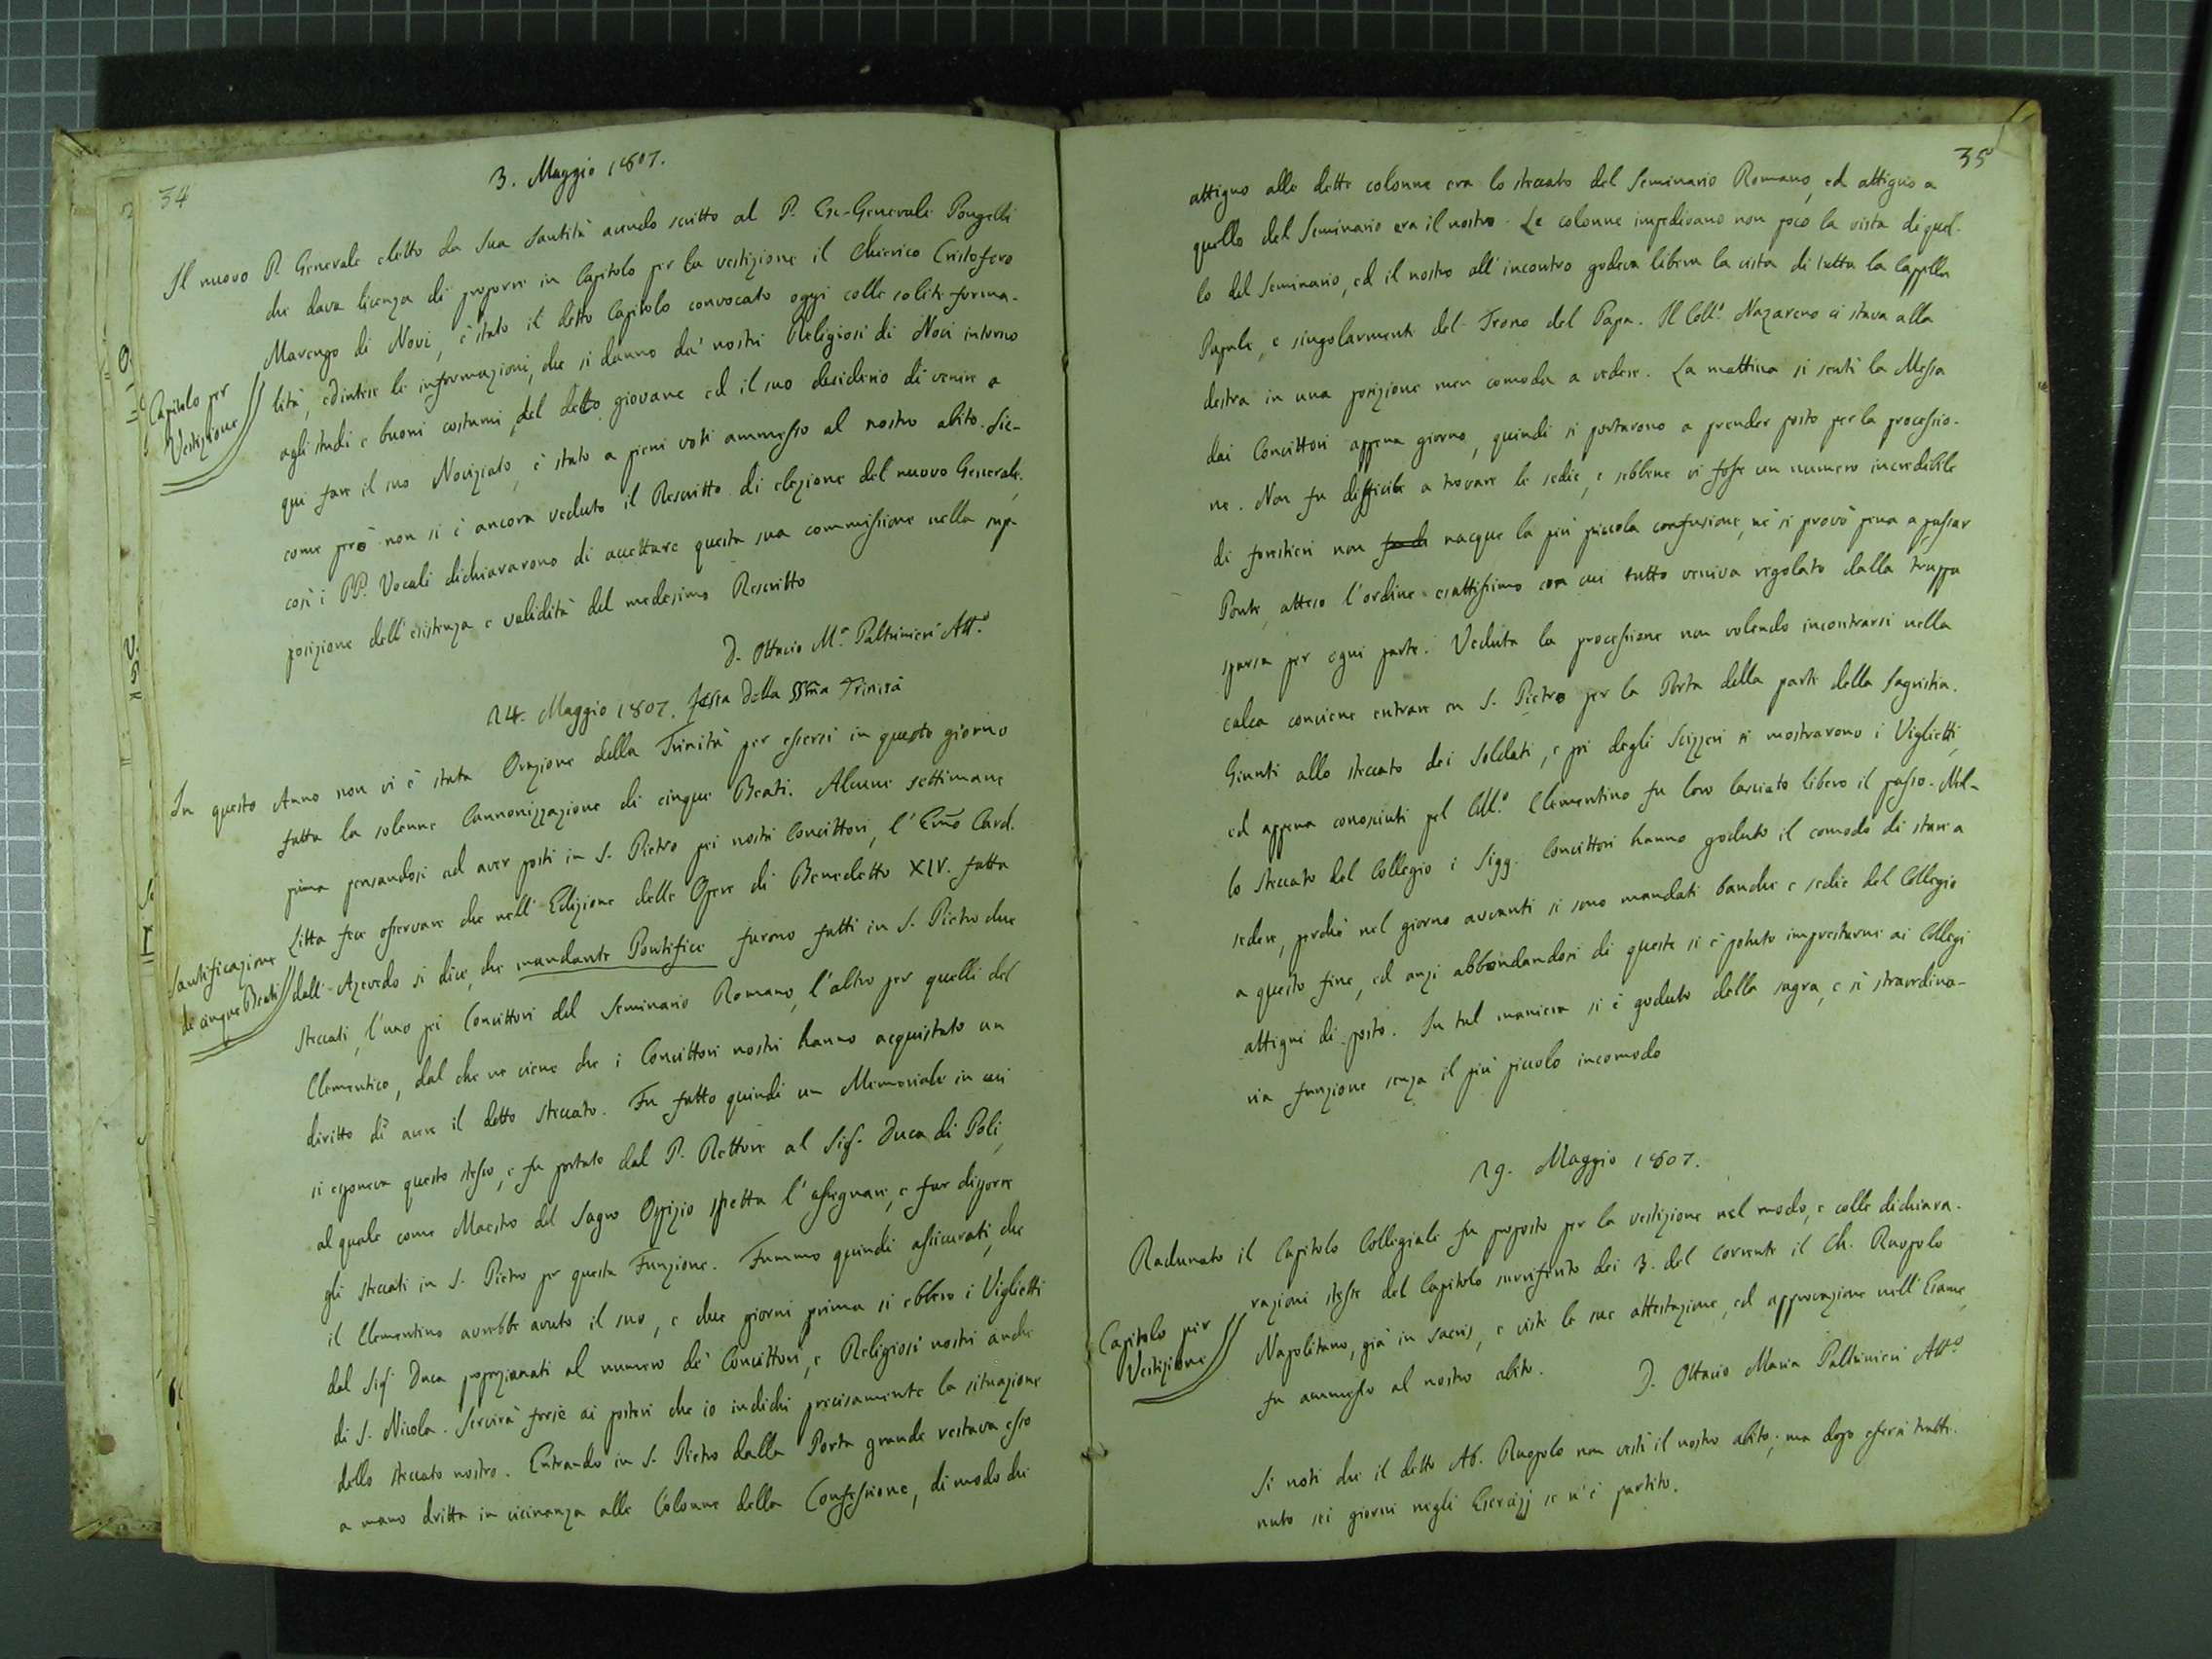 34
3. Maggio 1807.
Il nuovo P. Generale eletto da Sua Santità avendo scritto al P. Ex-Generale Pongelli
che dava licenza di proporre in Capitolo per la vestizione il Chierico Cristoforo
Marengo di Novi, è stato il detto Capitolo convocato oggi colle solite forma-
lità, ed intese le informazioni, che si danno da' nostri Religiosi di Novi intorno
Capitolo per
Vestizione
agli studi e buoni costumi del detto giovane ed il suo desiderio di venire a
qui fare il suo Noviziato, è stato a pieni voti ammesso al nostro abito. Sic-
come però non si è ancora veduto il Rescritto di elezione del nuovo Generale,
così i PP. Vocali dichiararono di accettare questa sua commissione nella sup-
posizione dell'esistenza e validità del medesimo Rescritto
D. Ottavio M.ª Paltrinieri Att.º
24. Maggio 1807. festa della SSma Trinità
In questo Anno non vi è stata Orazione della Trinità per essersi in questo giorno
fatta la solenne Cannonizzazione di cinque Beati. Alcune settimane
prima pensandosi ad aver posti in S. Pietro pei nostri Convittori, l'Emo Card.
Litta fece osservare che nell'Edizione delle Opere di Benedetto XIV. fatta
Santificazione
de cinque Beati
dall'Azevedo si dice, che mandante Pontifice furono fatti in S. Pietro due
steccati, l'uno pei Convittori del Seminario Romano, l'altro per quelli del
Clementico, dal che ne viene che i Convittori nostri hanno acquistato un
diritto di avere il detto steccato. Fu fatto quindi un Memoriale in cui
si esponeva questo stesso, e fu portato dal P. Rettore al Sig. Duca di Poli,
al quale come Maestro del Sagro Ospizio spetta l'assegnare, e far disporre
gli steccati in S. Pietro per questa Funzione. Fummo quindi assicurati, che
il Clementino avrebbe avuto il suo, e due giorni prima si ebbero i Viglietti
dal Sig. Duca proporzionati al numero de' Convittori, e Religiosi nostri anche
di S. Nicola. Servirà forse ai posteri che io indichi precisamente la situazione
dello steccato nostro. Entrando in S. Pietro dalla Porta grande restava esso
a mano dritta in vicinanza alle Colonne della Confessione, di modo che
35
attiguo alle dette colonne era lo steccato del Seminario Romano, ed attiguo a
quello del Seminario era il nostro. Le colonne impedivano non poco la vista di quel-
lo del Seminario, ed il nostro all'incontro godeva libera la vista di tutta la Cappella
Papale, e singolarmente del Trono del Papa. Il Coll.º Nazareno ci stava alla
destra in una posizione men comoda a vedere. La mattina si sentì la Messa
dai Convittori appena giorno, quindi si portarono a prender posto per la processio-
ne. Non fu difficile a trovare le sedie, e sebbene vi fosse un numero incredibile
di forestieri non nacque la più piccola confusione, nè si provò pena a passar
Ponte, atteso l'ordine esattissimo con cui tutto veniva regolato dalla truppa
sparsa per ogni parte. Veduta la processione non volendo incontrarsi nella
calca conviene entrare in S. Pietro per la Porta della parte della Sagristia.
Giunti allo steccato dei Soldati, e poi degli Svizzeri si mostrarono i Viglietti,
ed appena conosciuti pel Coll.º Clementino fu loro lasciato libero il passo. Nel-
lo Steccato del Collegio i Sigg. Convittori hanno goduto il comodo di stare a
sedere, perchè nel giorno avanti si sono mandati banche e sedie del Collegio
a questo fine, ed anzi abbondandosi di queste si è potuto imprestarne ai Collegi
attigui di posto. In tal maniera si è goduto della sagra, e sì straordina-
ria funzione senza il più piccolo incomodo
29. Maggio 1807.
Radunato il Capitolo Collegiale fu proposto per la vestizione nel modo, e colle dichiara-
razioni stesse del Capitolo surriferito dei 3. del corrente il Ch. Ruopolo
Capitolo per
Vestizione
Napolitano, già in sacris, e viste le sue attestazione, ed approvazione nell'Esame,
fu ammesso al nostro abito.
D. Ottavio Maria Paltrinieri Att.º
Si noti che il detto Ab. Ruopolo non vestì il nostro abito; ma dopo essersi tratte-
nuto sei giorni negli Esercizj se n'è partito.